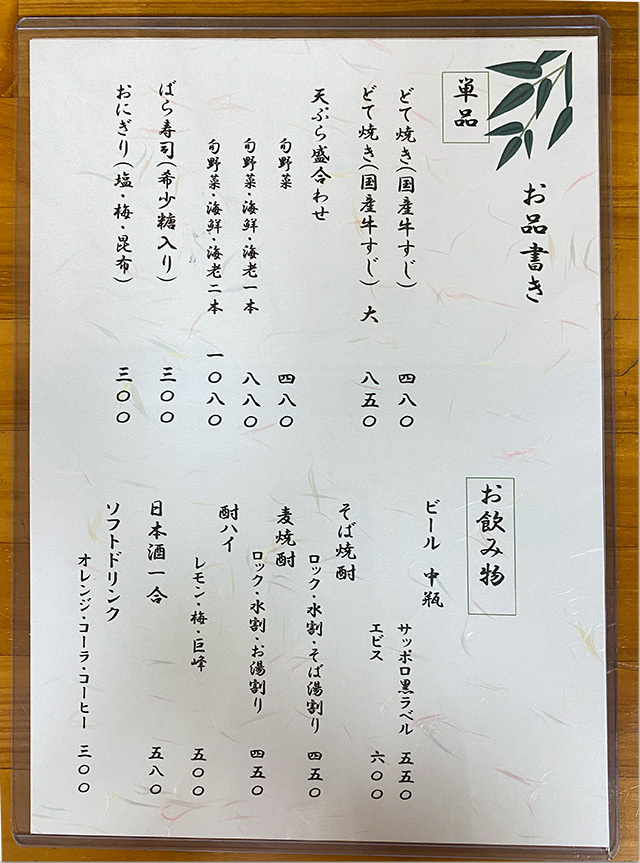 お品書き
単品
どて焼き(国産牛すじ) 四八〇
どて焼き(国産牛すじ) 大 八五〇
天ぷら盛合わせ
旬野菜 四八〇
旬野菜・海鮮・海老一本 八八〇
旬野菜・海鮮・海老二本 一〇八〇
ばら寿司(希少糖入り) 三〇〇
おにぎり(塩・梅・昆布) 三〇〇
お飲み物
ビール 中瓶
サッポロ黒ラベル 五五〇
エビス 六〇〇
そば焼酎
ロック・水割・そば湯割り 四五〇
麦焼酎
ロック・水割・お湯割り 四五〇
酎ハイ
レモン・梅・巨峰 五〇〇
日本酒一合 五八〇
ソフトドリンク
オレンジ・コーラ・コーヒー 三〇〇